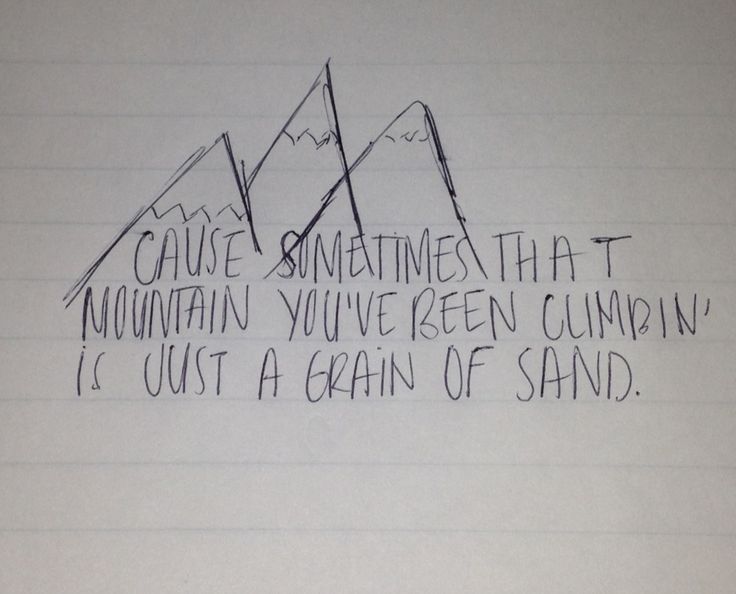 CAUSE SOMETIMES THAT
MOUNTAIN YOU'VE BEEN CLIMBIN'
is JUST A GRAIN OF SAND.